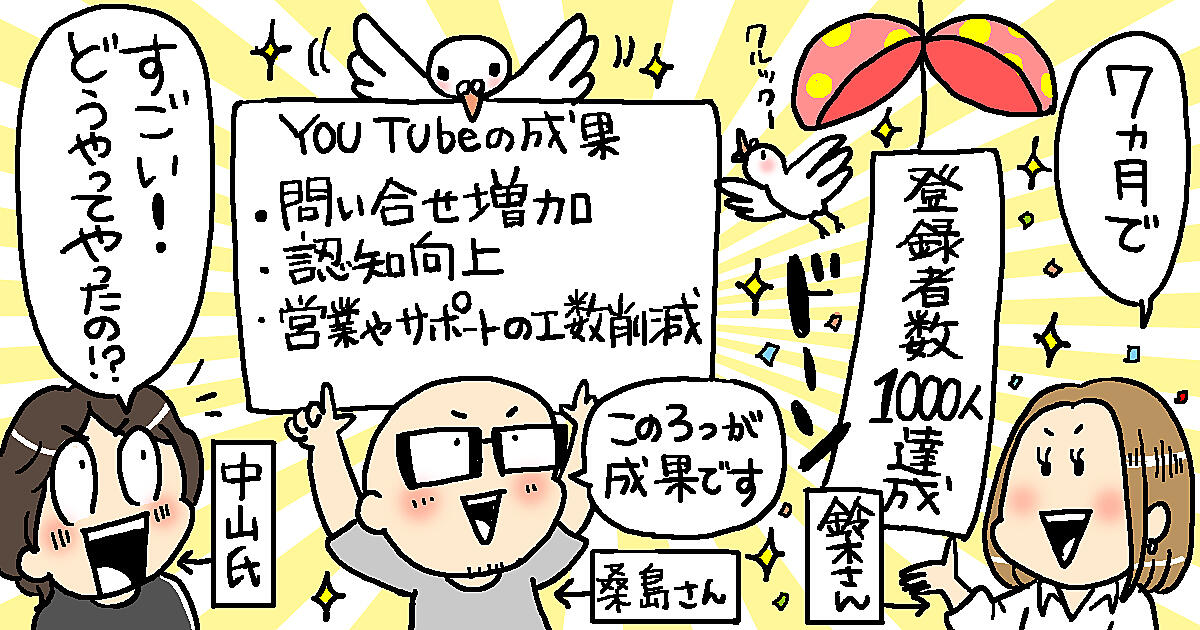 すごい!
どうやってやったの!?
YOU TUbeの成果
・問い合せ増加
・認知向上
・営業やサポートの工数削減
クルックー
7ヵ月で
登録者数1000人達成
ドーン
この3つが
成果です
中山氏
桑島さん
鈴木さん